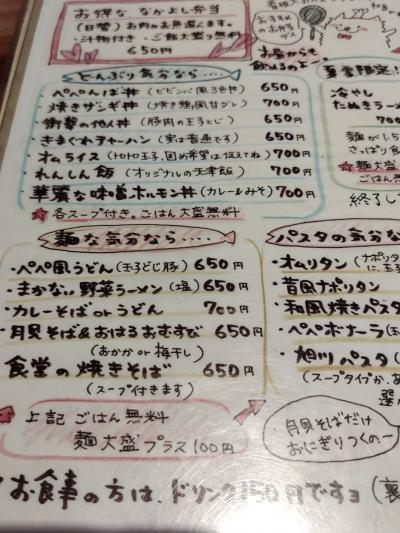 お得な なかよし弁当
(日替) お肉かお魚選べます。
汁物付き・ご飯大盛り無料
650円
おすすめ
のお弁当
デス
お昼からも
飲めるよ〜
どんぶり気分なら....
・ぺぺんば丼 (ビビンバ風3色丼) 650円
・焼きザンギ丼 (焼き鶏風甘ダレ) 700円
・衝撃の他人丼 (豚肉の玉子とじ) 650円
・きまぐれチャーハン (実は普通です) 650円
・オムライス (トロトロ玉子、固め希望は伝えてね) 700円
・れんしん飯 (オリジナルの天津飯) 700円
・華麗な味噌ホルモン丼 (カレー&みそ) 700円
☆各スープ付き。ごはん大盛無料
夏季限定!
冷やし
たぬきラーメン
麺が1.5
さっぱり食
☆麺大盛
ごはん無
終了し
麺な気分なら....
・ペペ風うどん (玉子とじ豚) 650円
・まかない野菜ラーメン (塩) 650円
・カレーそばorうどん 700円
・月見そば&おはるおむすび 650円
(おかか or 梅干し)
食堂の焼きそば 650円
(スープ付きます)
上記 ごはん無料
麺大盛プラス100円
パスタの気分な
・オムリタン (ナポリタン
に、玉子
・昔風ナポリタン
・和風焼きパスタ
・ペペボナーラ (玉
・旭川パスタ (
(スープタイプか、あ
選
月見そばだけ
おにぎりつくのー
お食事の方は、ドリンク150円ですョ (裏